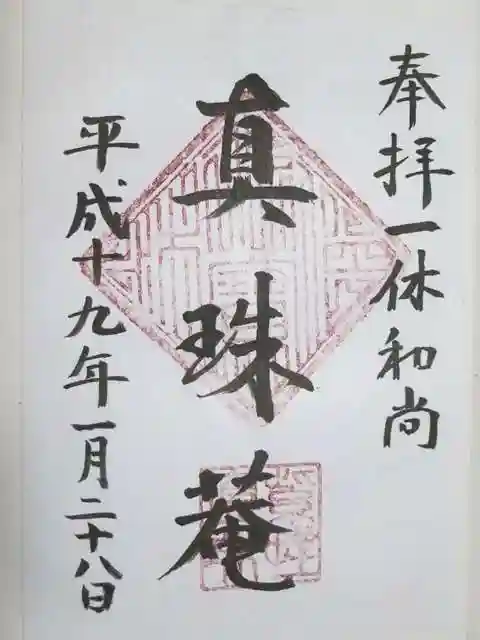 奉拝一休和尚
真珠菴
平成十九年一月二十八日